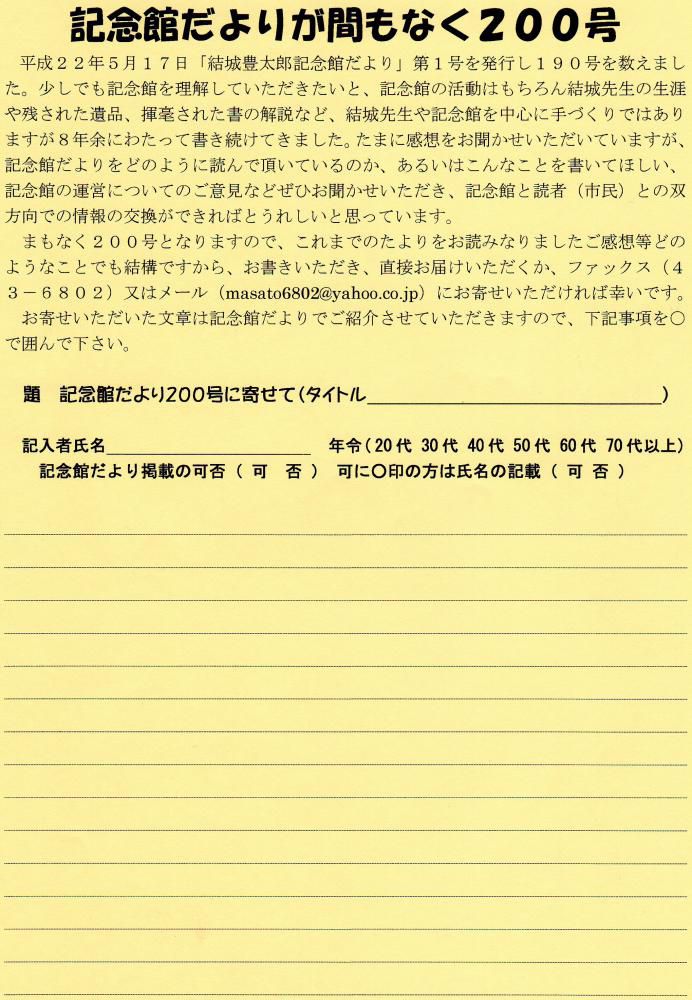 記念館だよりが間もなく２００号
平成２２年５月１７日「結城豊太郎記念館だより」第１号を発行し１９０号を数えまし
た。少しでも記念館を理解していただきたいと、記念館の活動はもちろん結城先生の生涯
や残された遺品、揮毫された書の解説など、結城先生や記念館を中心に手づくりではあり
ますが８年余にわたって書き続けてきました。たまに感想をお聞かせいただいていますが、
記念館だよりをどのように読んで頂いているのか、あるいはこんなことを書いてほしい、
記念館の運営についてのご意見などぜひお聞かせいただき、記念館と読者（市民）との双
方向での情報の交換ができればとうれしいと思っています。
まもなく２００号となりますので、これまでのたよりをお読みなりましたご感想等どの
ようなことでも結構ですから、お書きいただき、直接お届けいただくか、ファックス（４
３－６８０２）又はメール（masato6802@yahoo.co.jp）にお寄せいただければ幸いです。
お寄せいただいた文章は記念館だよりでご紹介させていただきますので、下記事項を〇
で囲んで下さい。
題　記念館だより200号に寄せて（タイトル＿＿＿＿＿＿＿＿＿＿＿＿＿＿）
記入者氏名＿＿＿＿＿＿＿＿＿＿　年令（20代 30代 40代 50代 60代 70代以上）
記念館だより掲載の可否（ 可　否 ）　可に〇印の方は氏名の記載（ 可 否 ）